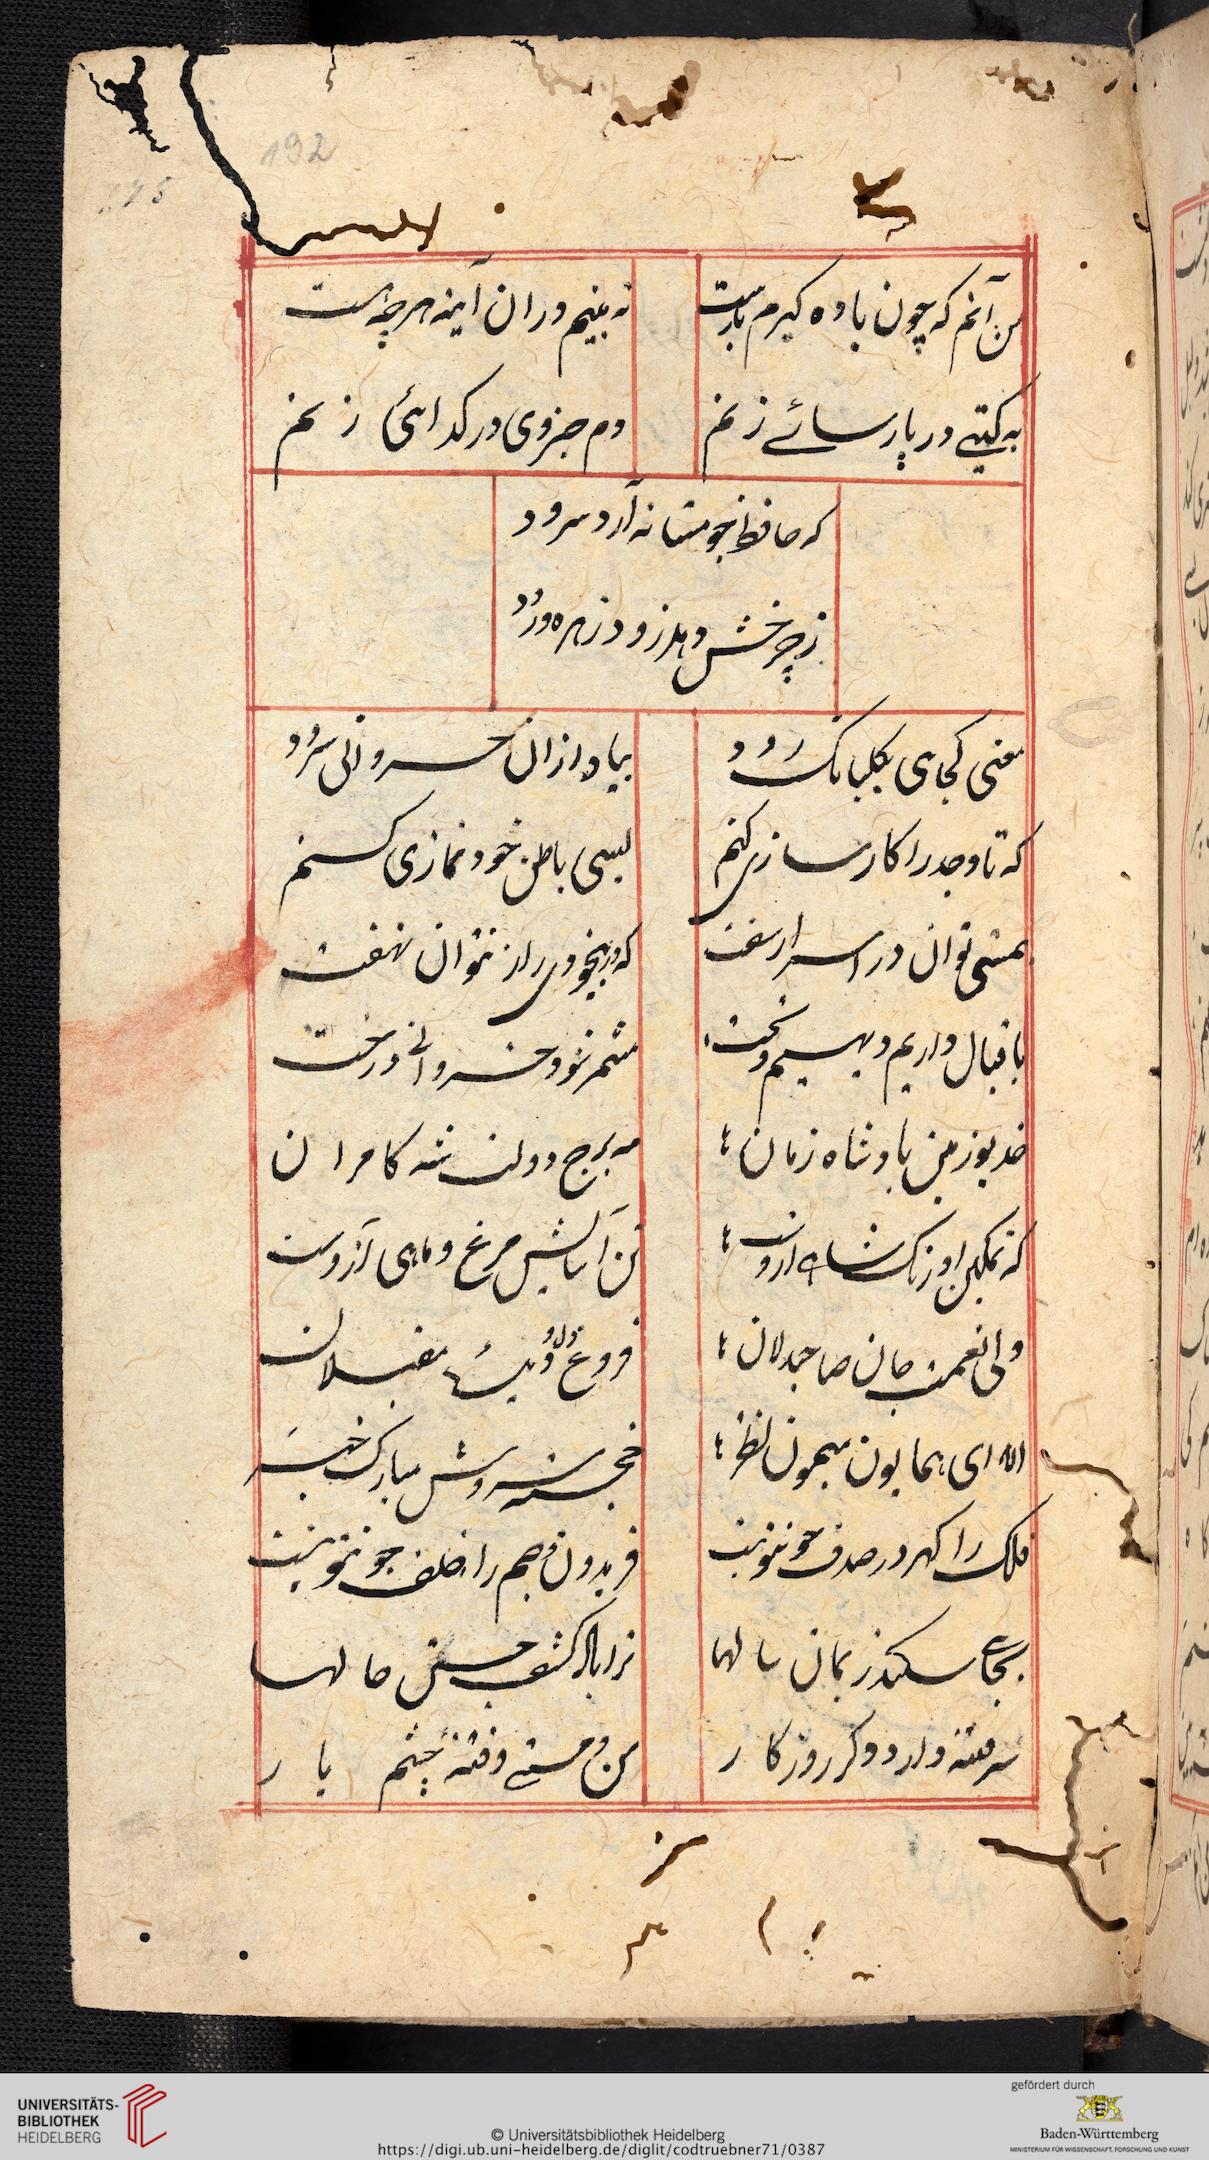 192
من آنم که چون باده گیرم بدست
به بینم دران آینه هرچه هست
به گیتی در پارسائے زنم
دم خسروی در گدائی زنم
که حافظ چو مستانه آرد سرود
ز چرخش دهد زود زهره درود
مغنی کجاهی بگلبانگ رود
بیاد ازان خسروانی سرود
که تا وجد را کارسازی کنم
باطن خود نمازی کنم
بمستی توان در اسرار سفت
که در بیخودی راز نتوان نهفت
باقبال داریم دیهیم و تخت
مثمر شود خسروانی درخت
خدیو زمین پادشاه زمان
مه برج دولت شه کامران
که تمکین اورنگ شاهی ازوست
تن آسایش مرغ و ماهی ازوست
ولی نعمت جان صاحبدلان
فروغ دل و دیدۀ مقبلان
الا ای همایون میمون نظر
خجسته سروش مبارک خبر
فلک را گهر در صدف چو تو نیست
فریدون و جم را خلف چو تو نیست
بجاے سکندر بمان سالها
کشف حالها
سر فتنه دارد دگر روزگار
من و مستے و فتنۀ چشم یار
UNIVERSITÄTS-
BIBLIOTHEK
HEIDELBERG
© Universitätsbibliothek Heidelberg
https://digi.ub.uni-heidelberg.de/diglit/codtruebner71/0387
gefördert durch
Baden-Württemberg
MINISTERIUM FÜR WISSENSCHAFT, FORSCHUNG UND KUNST